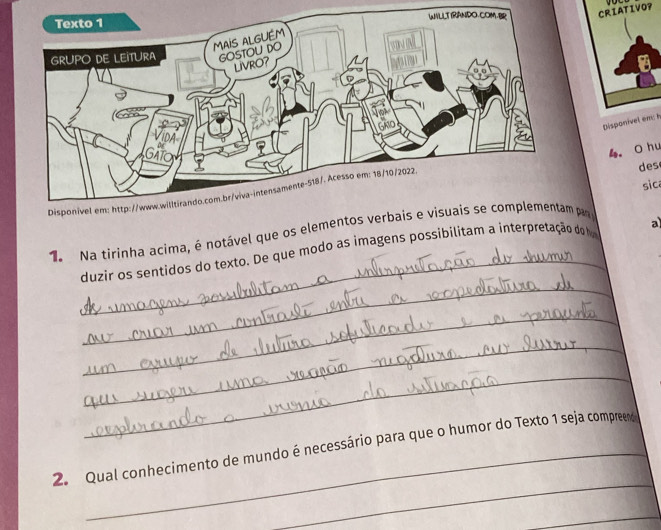 Texto 1
WILLTIRANDO.COM.BR
GRUPO DE LEITURA
MAIS ALGUÉM
GOSTOU DO
LIVRO?
VIDA
DE
GATO
VIDA
DE
GATO
CRIATIVO?
Disponível em: http://www.willtirando.com.br/viva-intensamente-518/. Acesso em: 18/10/2022.
Disponível em: h
4. O hu
des
sica
a)
1. Na tirinha acima, é notável que os elementos verbais e visuais se complementam para
duzir os sentidos do texto. De que modo as imagens possibilitam a interpretação do hu
As imagens possibilitam a interpretação do humor
ao criar um contraste entre a
um grupo de leitura e a pergunta
que sugere uma reação negativa ou
explorando a ironia da situação
2. Qual conhecimento de mundo é necessário para que o humor do Texto 1 seja compreend